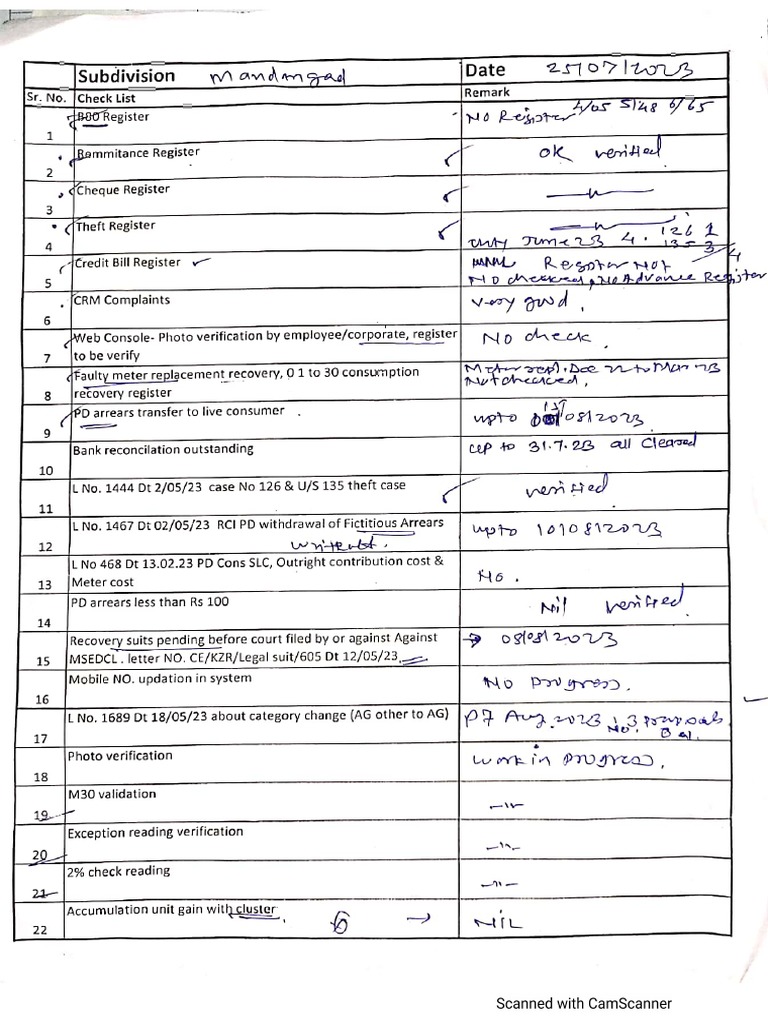 Subdivision Mandngad Date 25/07/2023
Sr. No. Check List Remark
1 B80 Register No Register 4/05 5/48 6/65
2 Remmitance Register OK verified
3 Cheque Register —"—
4 Theft Register —"— 126 1
only June 23 4. 135 3
5 Credit Bill Register Register Not
No checked, No Advance Register
6 CRM Complaints very good.
7 Web Console- Photo verification by employee/corporate, register No check.
to be verify
8 Faulty meter replacement recovery, 0 1 to 30 consumption Meter repl. Dec 22 to Mar 23
recovery register Not checked.
9 PD arrears transfer to live consumer . upto 08/2023
10 Bank reconcilation outstanding up to 31.7.23 all Cleared
11 L No. 1444 Dt 2/05/23 case No 126 & U/S 135 theft case verified
12 L No. 1467 Dt 02/05/23 RCI PD withdrawal of Fictitious Arrears upto 10/08/2023
13 L No 468 Dt 13.02.23 PD Cons SLC, Outright contribution cost & No.
Meter cost
14 PD arrears less than Rs 100 Nil verified
15 Recovery suits pending before court filed by or against Against → 05/08/2023
MSEDCL . letter NO. CE/KZR/Legal suit/605 Dt 12/05/23
16 Mobile NO. updation in system No progress.
17 L No. 1689 Dt 18/05/23 about category change (AG other to AG) Aug. 2023 3 proposals
No. Bal.
18 Photo verification work in progress.
19 M30 validation —"—
20 Exception reading verification —"—
21 2% check reading —"—
22 Accumulation unit gain with cluster → NIL
Scanned with CamScanner